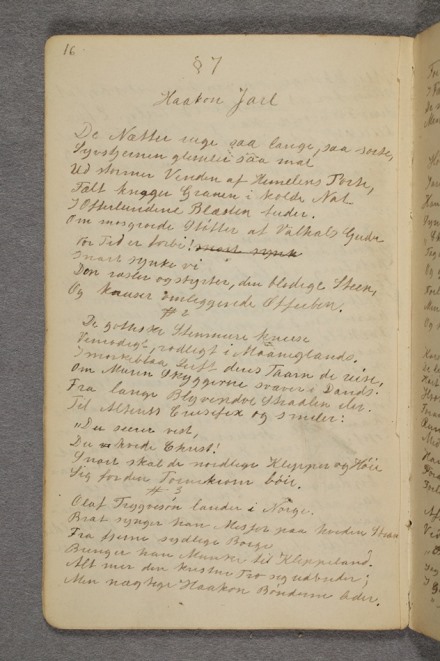 16
§ 7
Haakon Jarl
De Nætter ruge saa lange, saa sorte,
Syvstjernen glimter saa mat
Ud stormer Vinden af Himelens Porte,
Tält knuger Granen i kolde Nat
I Offerlundene Blæsten
Om mosgroede Stötter af Valhals Gude
Vor Tid er forbi! snart synk
Snart synke vi
Den rasler og styrter, den blodige Steen,
Og knuser
# 2
De gothiske Steenmure knuse
Vemodigt, rodligt i Maaneglands.
I mörkeblaa Luft deres Taarn de reise,
Om Muren Skyggerne svæver i Dands.
Fra lange Blyvindve Straalen iler
Til Alterets Crusifix og smiler:
"Du seirer vist,
Du Hvide Christ!
Snart skal de nordlige Klipper og Höie
Sig for din Tornekrone böie.
# 3
Olaf Trygvesön lander i Norge.
Brat synger han Messer paa hviden Strand
Fra sine sydlige Borge
Bringer han Munke til Klippeland.
Alt mer den kristne Tro sig udbreder;
Men mægtige Haakon Bönderne leder.